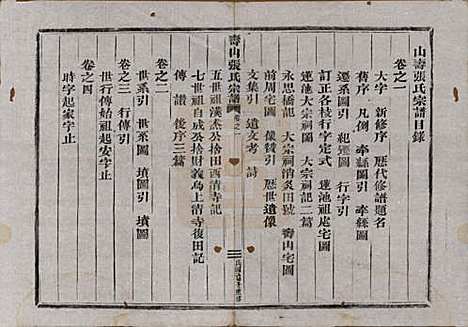 山壽張氏宗譜目錄
卷之一
大字 新修序 歷代修譜題名
舊序 凡例 奉縣圖引 奉縣圖
遷系圖引 紀遷圖 行字引
訂正各枝行字定式 蓮池祖處宅圖
蓮池大宗圖 大宗祠記二篇
永思橋記 大宗祠消炙田號 壽山宅圖
前周宅圖 像贊引 歷世遺像
文集引 遺文考 詩
壽山張氏宗譜 卷之一
五世祖漢杰公捨田西清寺記
七世祖自成公捨財義烏上清寺復田記
傳 譜 後序三篇
卷之二
世系引 世系圖 墳圖引 墳圖
卷之三 行傳引
世行傳始祖起安字止
卷之四
時字起家字止